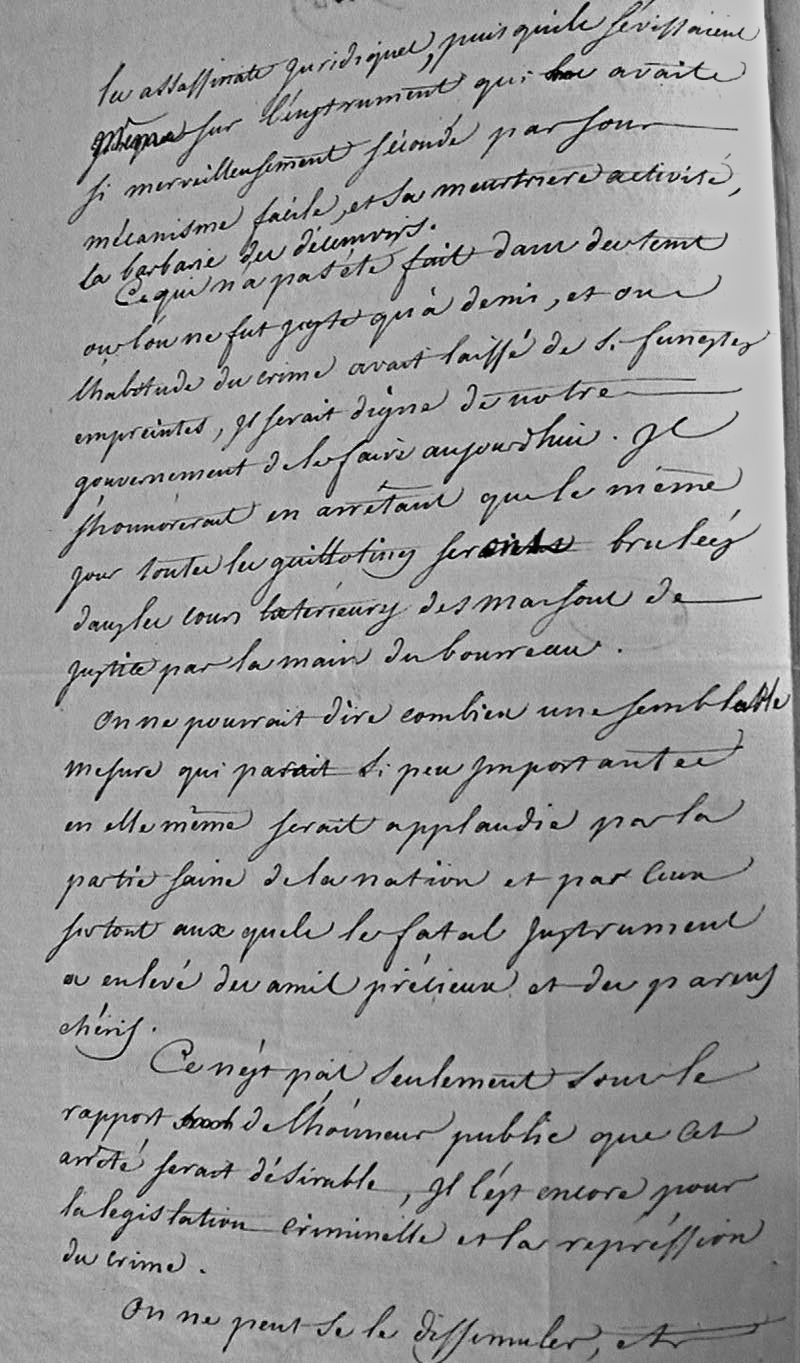 les assassinats juridiques, puis qu'ils sévissaient
même sur l'instrument qui avait
si merveilleusement sécondé par son
mécanisme facile, et sa meurtriere activité,
la barbarie des décemvirs.
Ce qui n'a pas été fait dans des tems
ou l'on ne fut juste qu'à demi, et ou
l'habitude du crime avait laissé de si funestes
empreintes, Il serait digne de notre
gouvernement de le faire aujourdhui. Il
s'honnorerait en arrêtant que le même
jour toutes les guillotines seront brulées
dans les cours interieures des maisons de
justice par la main du bourreau.
On ne pourrait dire combien une semblable
mesure qui parait si peu importante
en elle même serait applaudie par la
partie saine de la nation et par ceux
surtout aux quels le fatal Instrument
a enlevé des amis précieux et des parens
chéris.
Ce n'est pas seulement sous le
rapport de l'honneur public que cet
arrêté serait désirable, Il l'est encore pour
la legislation criminelle et la répréssion
du crime.
On ne peut se le dissimuler, et